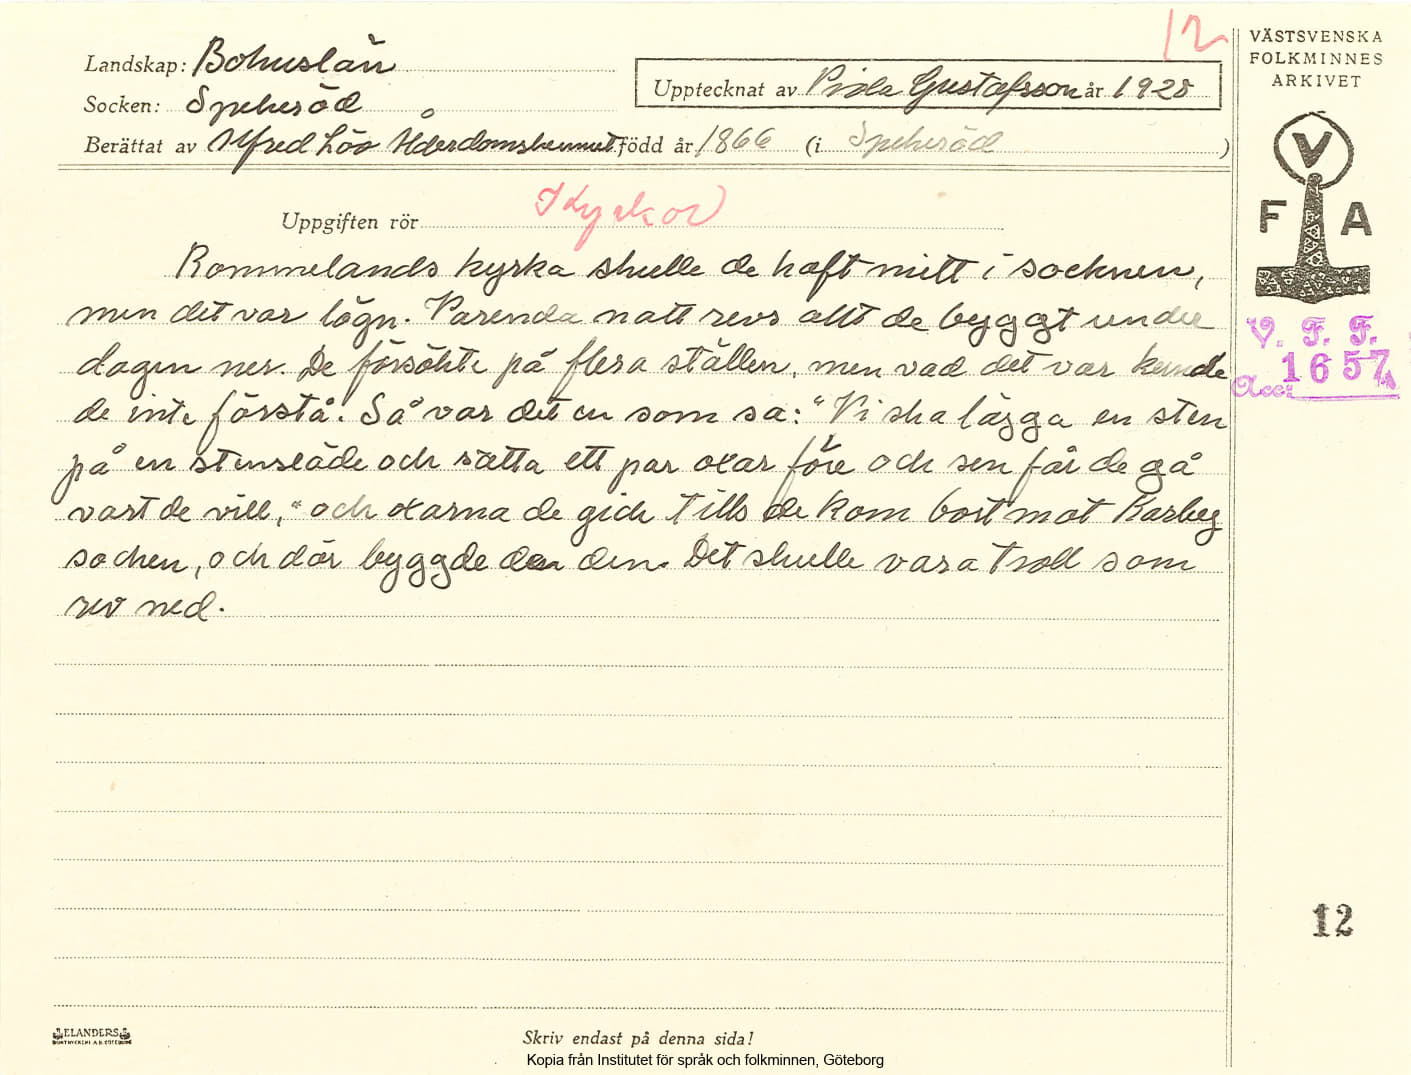 12
Landskap: Bohuslän
Upptecknat av Viola Gustafsson år 1928
Socken: Spekeröd
Berättat av Alfred Löv Ålderdomshemmet född år 1866 (i Spekeröd )
VÄSTSVENSKA
FOLKMINNES
ARKIVET
V
F A
V. F. F.
Acc. 1657
Uppgiften rör Kyrkor
Rommelands kyrka skulle de haft mitt i socknen,
men det var lögn. Varenda natt revs allt de byggt under
dagen ner. De försökte på flera ställen, men vad det var kunde
de inte förstå. Så var det en som sa: "Vi ska lägga en sten
på en stenslåde och sätta ett par oxar före och sen får de gå
vart de vill," och oxarna de gick tills de kom bort mot Kareby
socken, och där byggde den. Det skulle vara troll som
rev ned.
12
ELANDERS
Skriv endast på denna sida!
Kopia från Institutet för språk och folkminnen, Göteborg